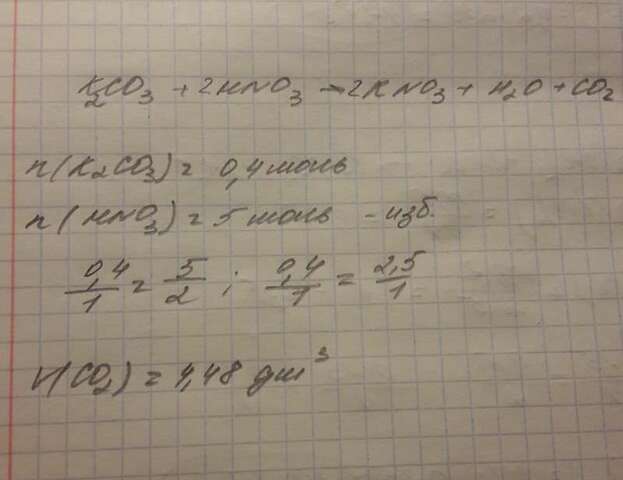 K₂CO₃ + 2HNO₃ – 2KNO₃ + H₂O + CO₂
n(K₂CO₃) = 0,4 моль
n(HNO₃) = 5 моль – изб.
0,4/1 = 5/2 ; 0,4/1 = 2,5/1
V(CO₂) = 4,48 дм³